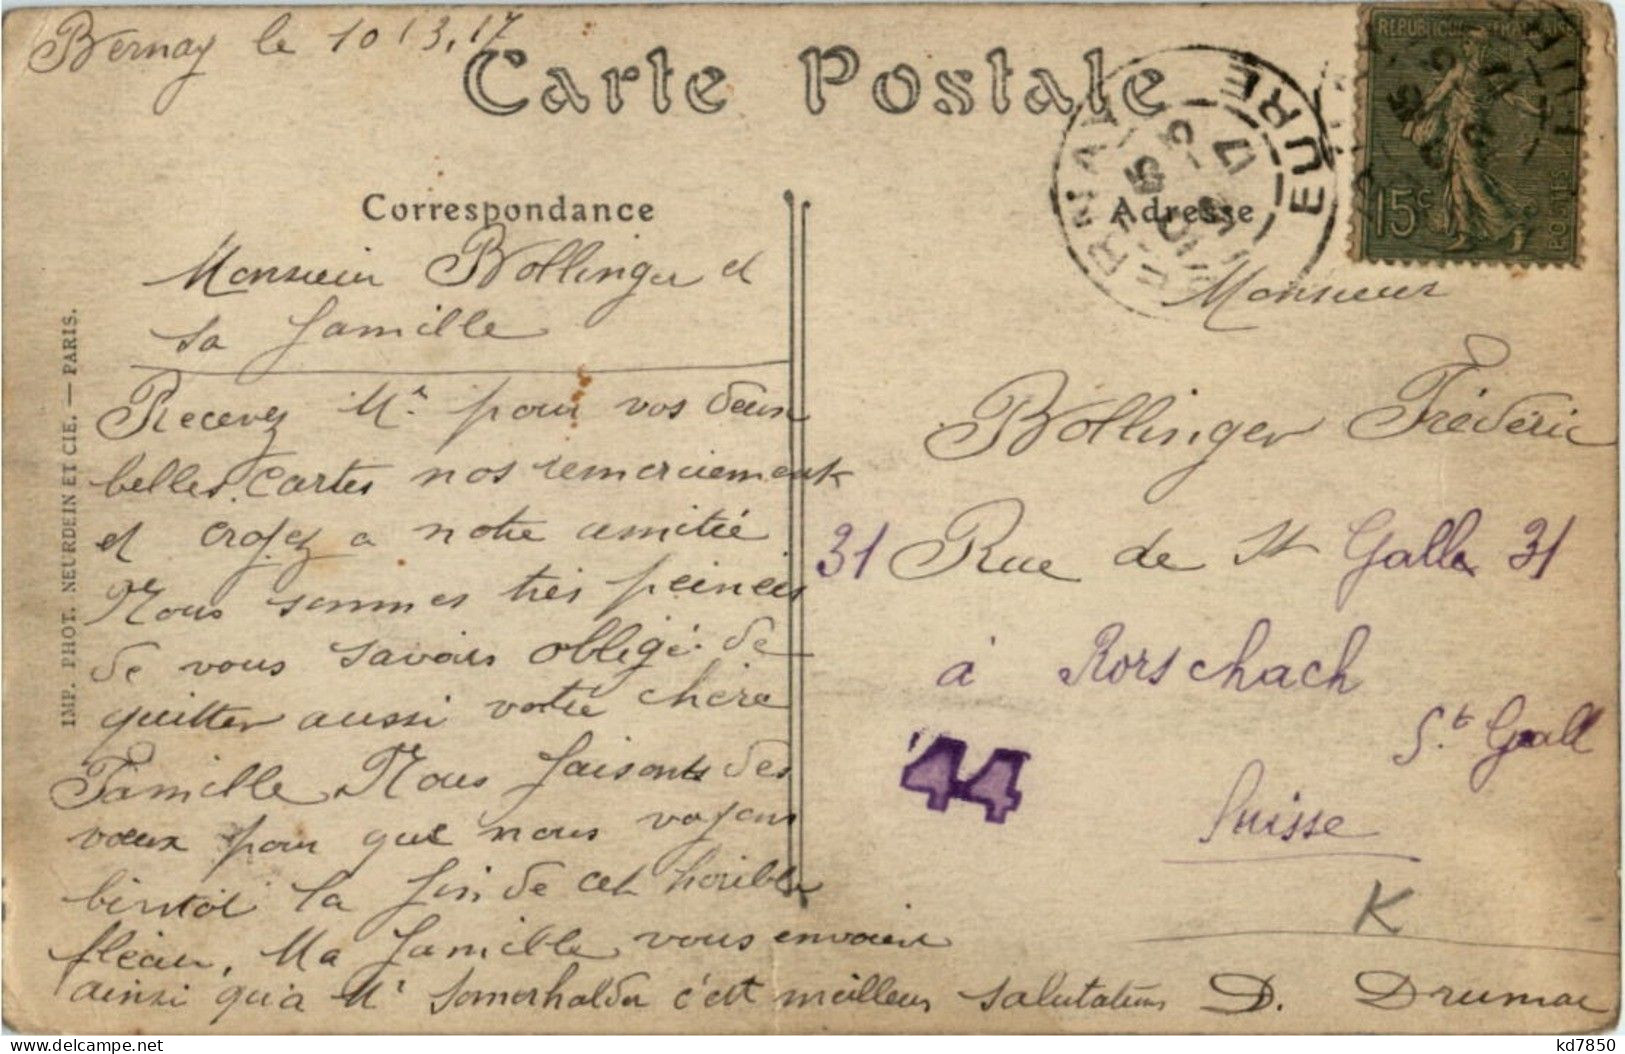 Bernay le 10 / 3. 17
Carte Postale
REPUBLIQUE FRANÇAISE
15c
POSTES
EURE
17
Correspondance
Adresse
Monsieur Bollinger et
sa famille
Recevez Mr pour vos deux
belles cartes nos remerciements
et croyez a notre amitié
Nous sommes très peinés
de vous savoir obligé de
quitter aussi votre chère
Famille Nous faisons des
vœux pour que nous voyons
bientôt la fin de cet horible
fléau. Ma famille vous envoient
ainsi qu'à Mr Somerhalder c'ett meilleurs salutations D. Drumac
Monsieur
Bollinger Fréderic
31 Rue de St Galle 31
à Rorschach
St. Gall
Suisse
44
K
IMP. PHOT. NEURDEIN ET CIE. — PARIS.
kd7850